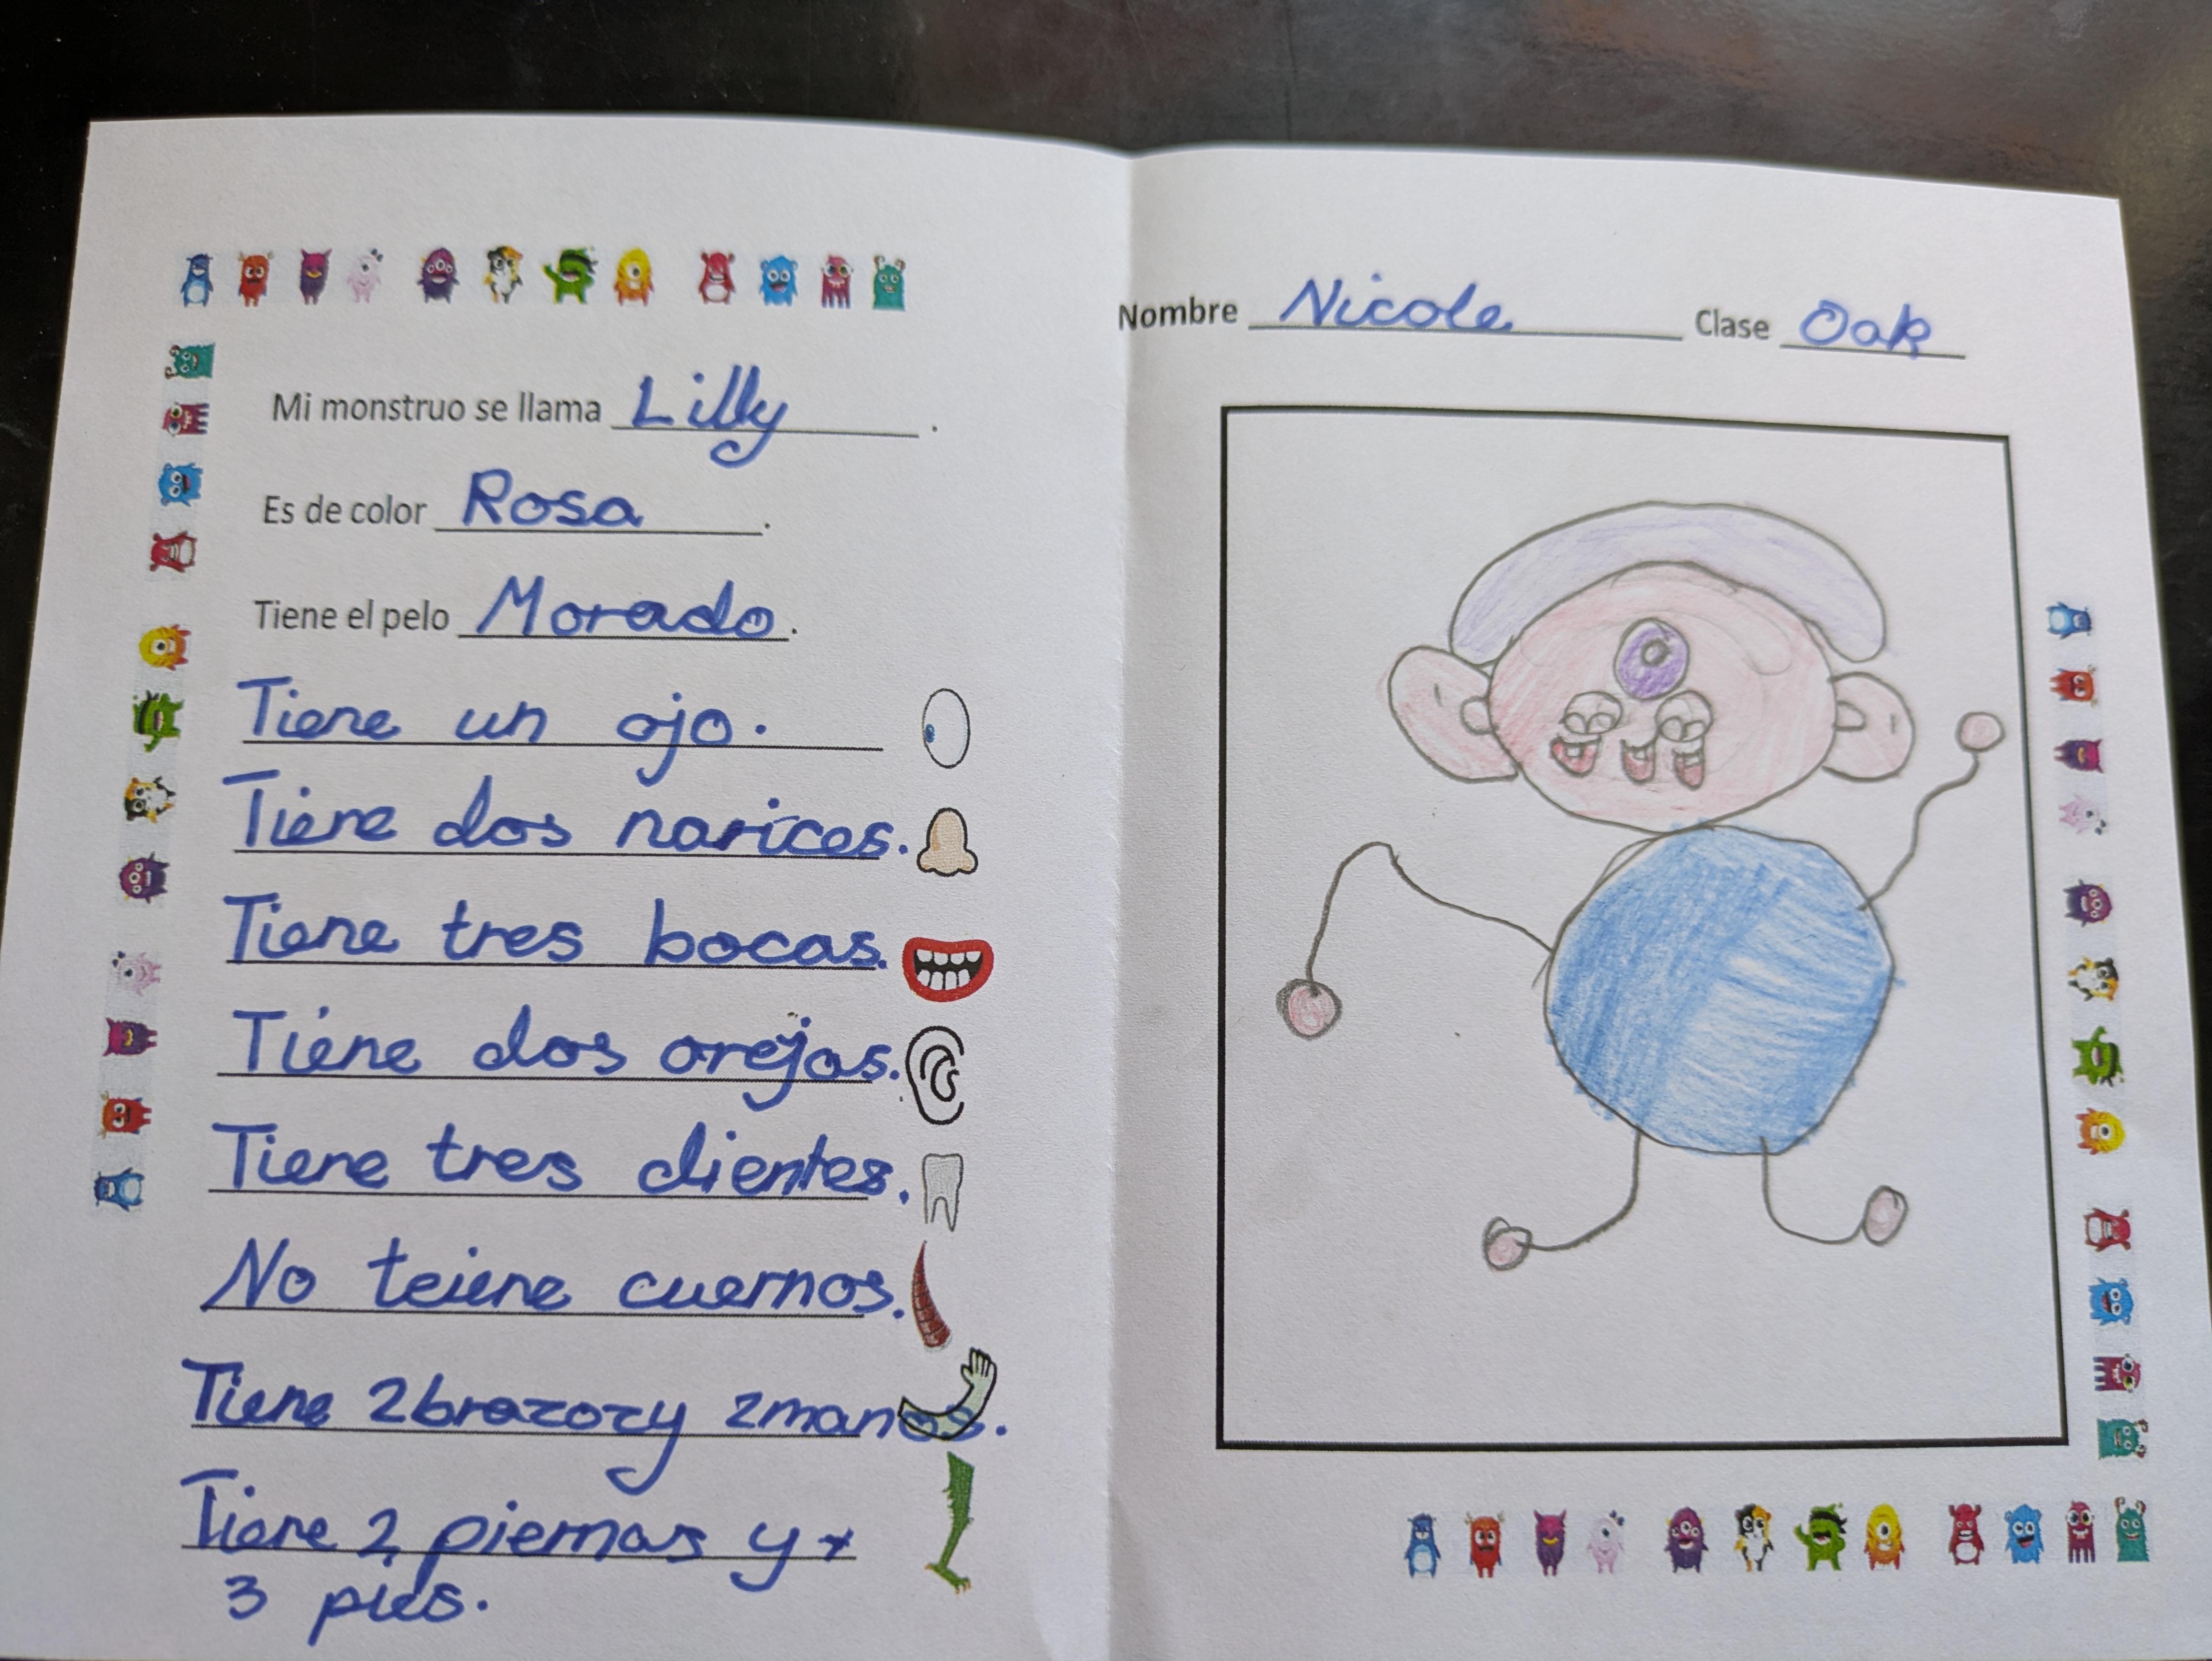 Mi monstruo se llama Lilly.
Es de color Rosa.
Tiene el pelo Morado.
Tiene un ojo.
Tiene dos narices.
Tiene tres bocas.
Tiene dos orejas.
Tiene tres dientes.
No teiene cuernos.
Tiene 2 brazozy 2 manos.
Tiene 2 piernas y
3 pies.
Nombre Nicole Clase Oak